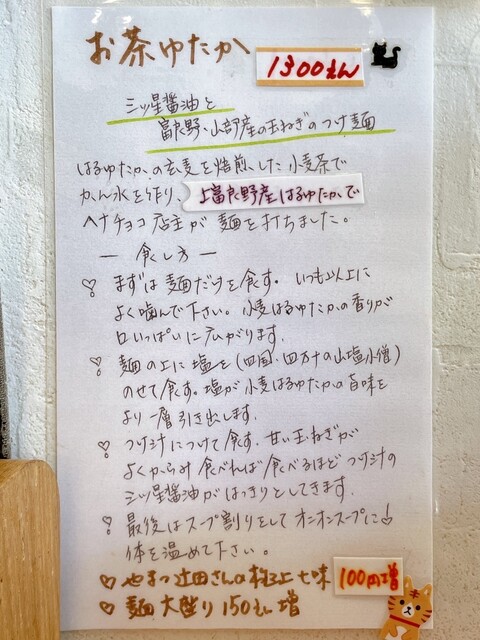 お茶ゆたか 1300えん
三ツ星醤油と
富良野、山部産の玉ねぎのつけ麺
はるゆたかの玄麦を焙煎した小麦茶で
かん水を作り、上富良野産はるゆたかで
ヘナチョコ店主が麺を打ちました。
ー 食し方 ー
まずは麺だけを食す。いつも以上に
よく噛んで下さい。小麦はるゆたかの香りが
口いっぱいに広がります。
麺の上に塩を(四国・四万十の山塩小僧)
のせて食す。塩が小麦はるゆたかの旨味を
より一層引き出します。
つけ汁につけて食す。甘い玉ねぎが
よくからみ食べれば食べるほどつけ汁の
三ツ星醤油がはっきりとしてきます。
最後はスープ割りをしてオニオンスープに
体を温めて下さい。
♡やまつ辻田さんの極上七味 100円増
♡麺大盛り150えん増